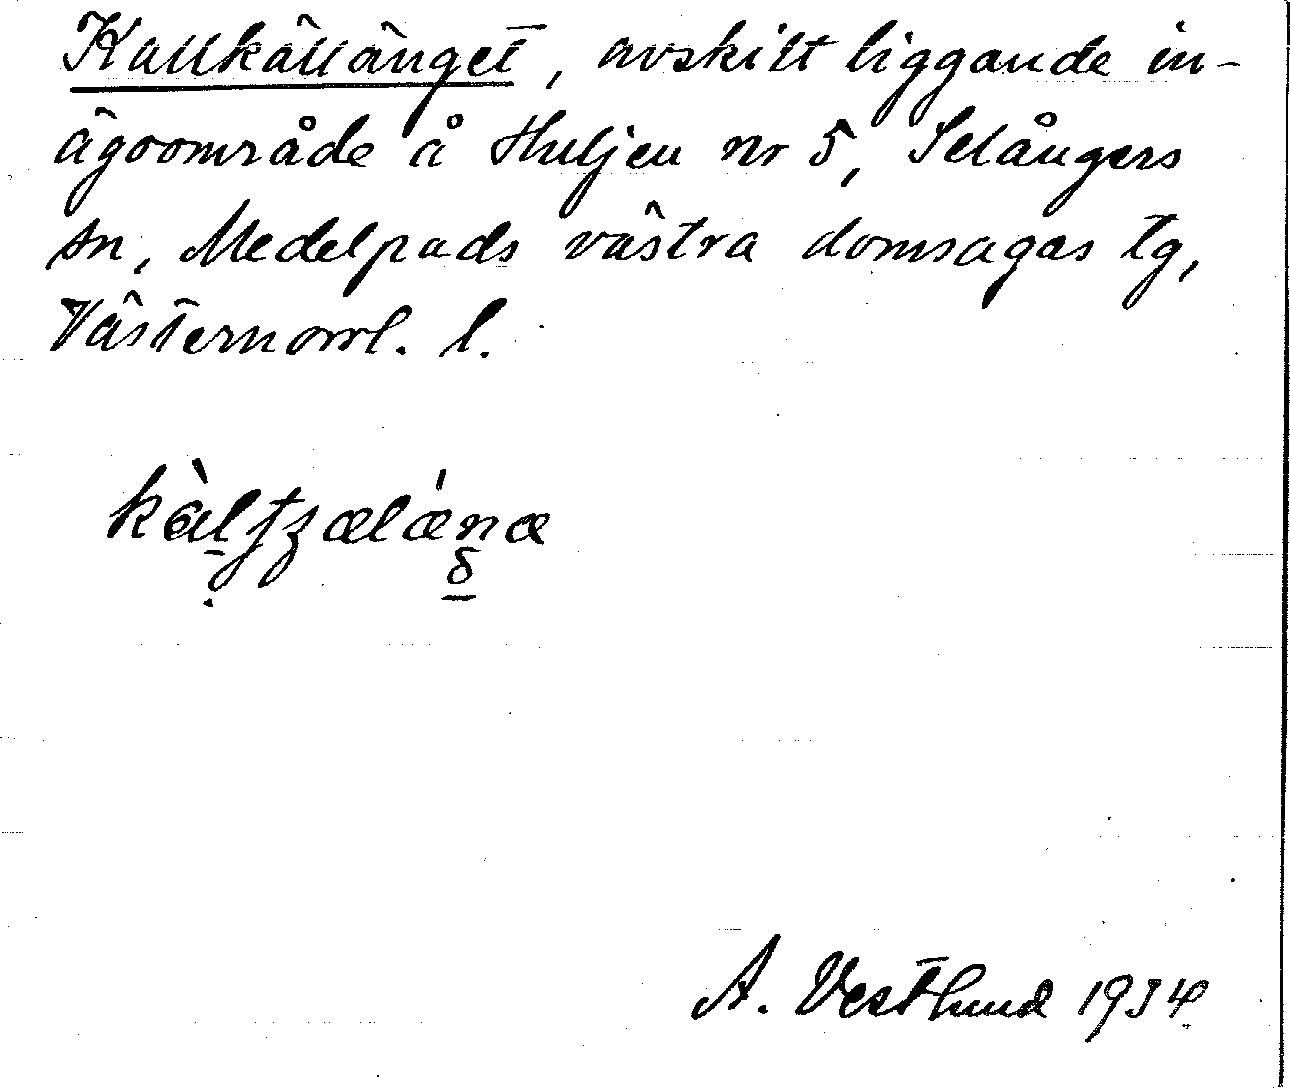 Kallkälländet, avskilt liggande in-
ägoområde å Huljen nr 5, Selångers
sn, Medelpads västra domsagas tg,
Västernorrl. l.
A. Vestlund 1934